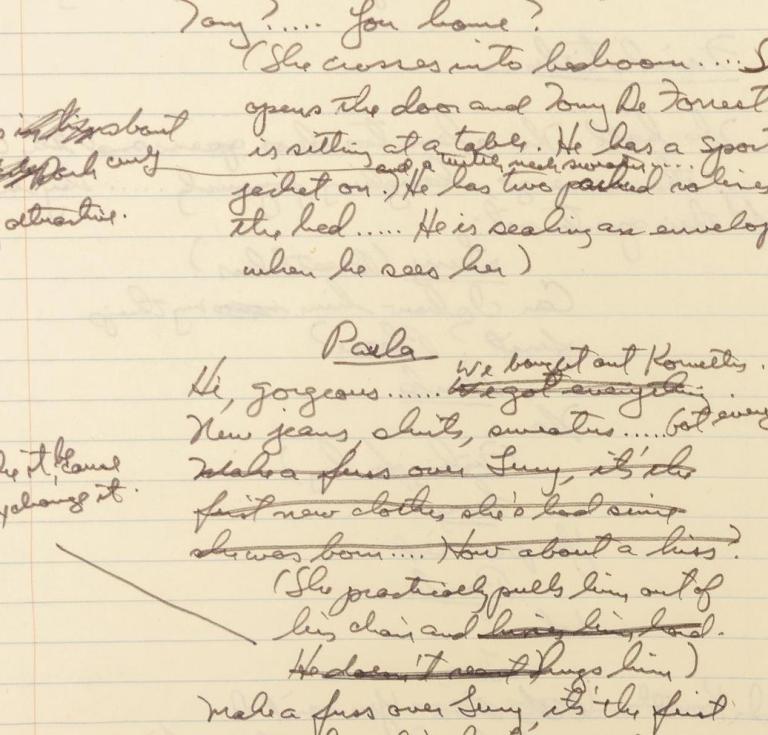 Tony?..... You home?
(She crosses into bedroom.... S
opens the door and Tony De Forrest
is sitting at a table. He has a spor
and a turtle neck sweater.....
jacket on.) He has two packed valises
the bed..... He is sealing an envelop
when he sees her)
about
Dark curly
attractive.
Paula
We bought out Korvettes.
Hi, gorgeous...... We got everything.
New jeans, shirts, sweaters..... Got every
Make a fuss over Lucy, it's the
first new clothes she's had since
she was born.... How about a kiss?
it, 'cause
exchange it.
(She practically pulls him out of
his chair and kisses him hard.
He doesn't react) hugs him)
Make a fuss over Lucy, it's the first